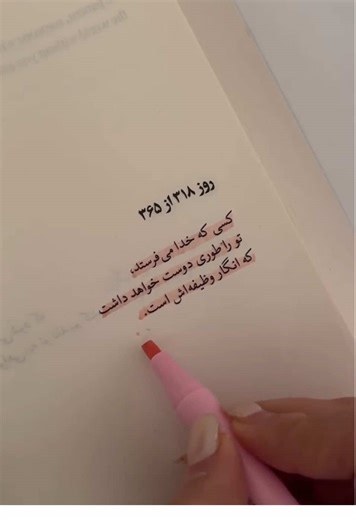 روز ۳۱۸ از ۳۶۵
کسی که خدا می‌فرستد،
تو را طوری دوست خواهد داشت
که انگار وظیفه‌اش است.